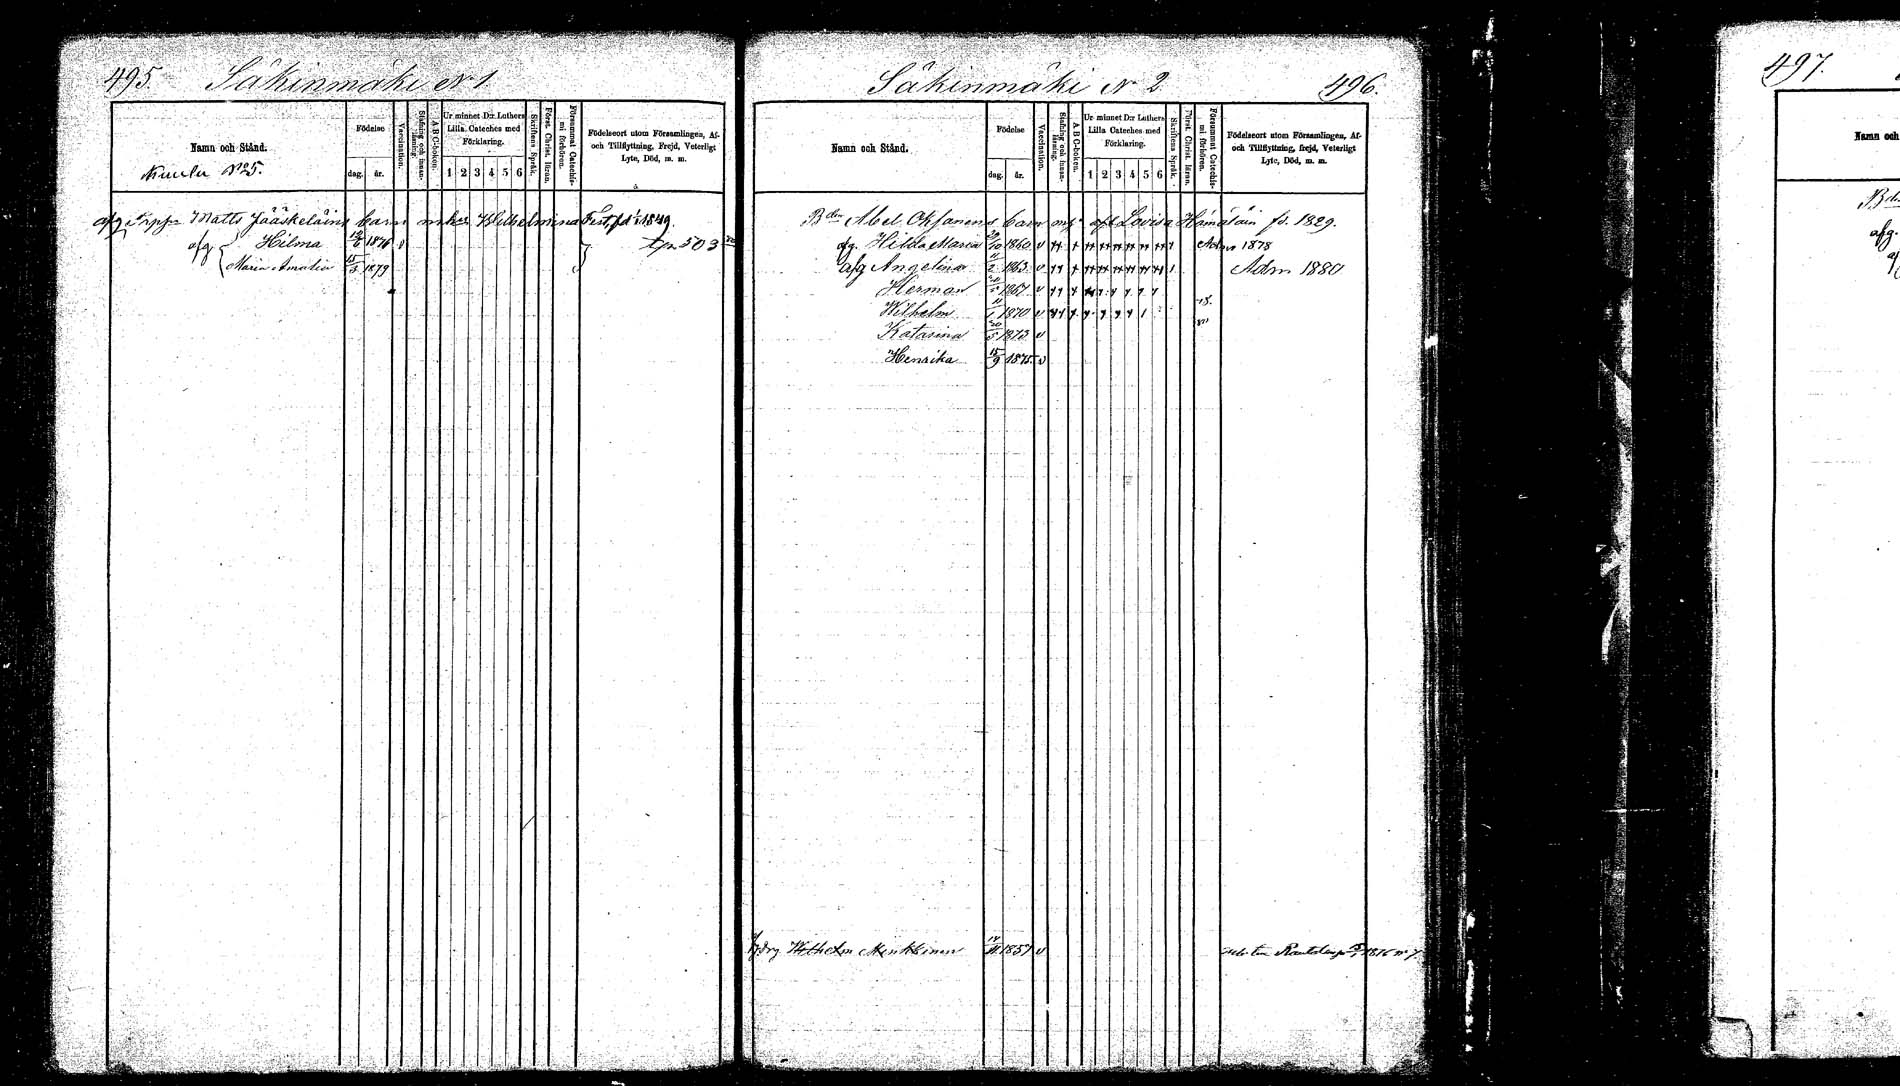 495. Säkinmäki N 1
Namn och Stånd.
Födelse
dag. år.
Vaccination.
Stafning och innanläsning.
A B C-boken.
Ur minnet D:r Luthers Lilla Cateches med Förklaring.
1 2 3 4 5 6
Skriftens Språk.
Först. Christ. läran.
Försummat Catechismi förhören.
Födelseort utom Församlingen, Af- och Tillflyttning, Frejd, Veterligt Lyte, Död, m. m.
No 5.
Matts Jääskeläins barn Wilhelmina 1849.
afg Hilma 1876 v
Maria Amalia 15/3 1879
503
Säkinmäki N 2 496.
Namn och Stånd.
Födelse
dag. år.
Vaccination.
Stafning och innanläsning.
A B C-boken.
Ur minnet D:r Luthers Lilla Cateches med Förklaring.
1 2 3 4 5 6
Skriftens Språk.
Först. Christ. läran.
Försummat Catechismi förhören.
Födelseort utom Församlingen, Af- och Tillflyttning, frejd, Veterligt Lyte, Död, m. m.
Bden Abel Oksanens barn Lovisa Hämäläin 1829.
afg. Hilda Maria 1860 v Adm 1878
afg Angelina 1863 v Adm 1880
Herman 1867 v
Wilhelm 1870 v
Katarina 1873 v
Henrika 15/9 1875 v
Wilhelm Minkkinen 1857 v
497.
Namn och
Bden
afg.